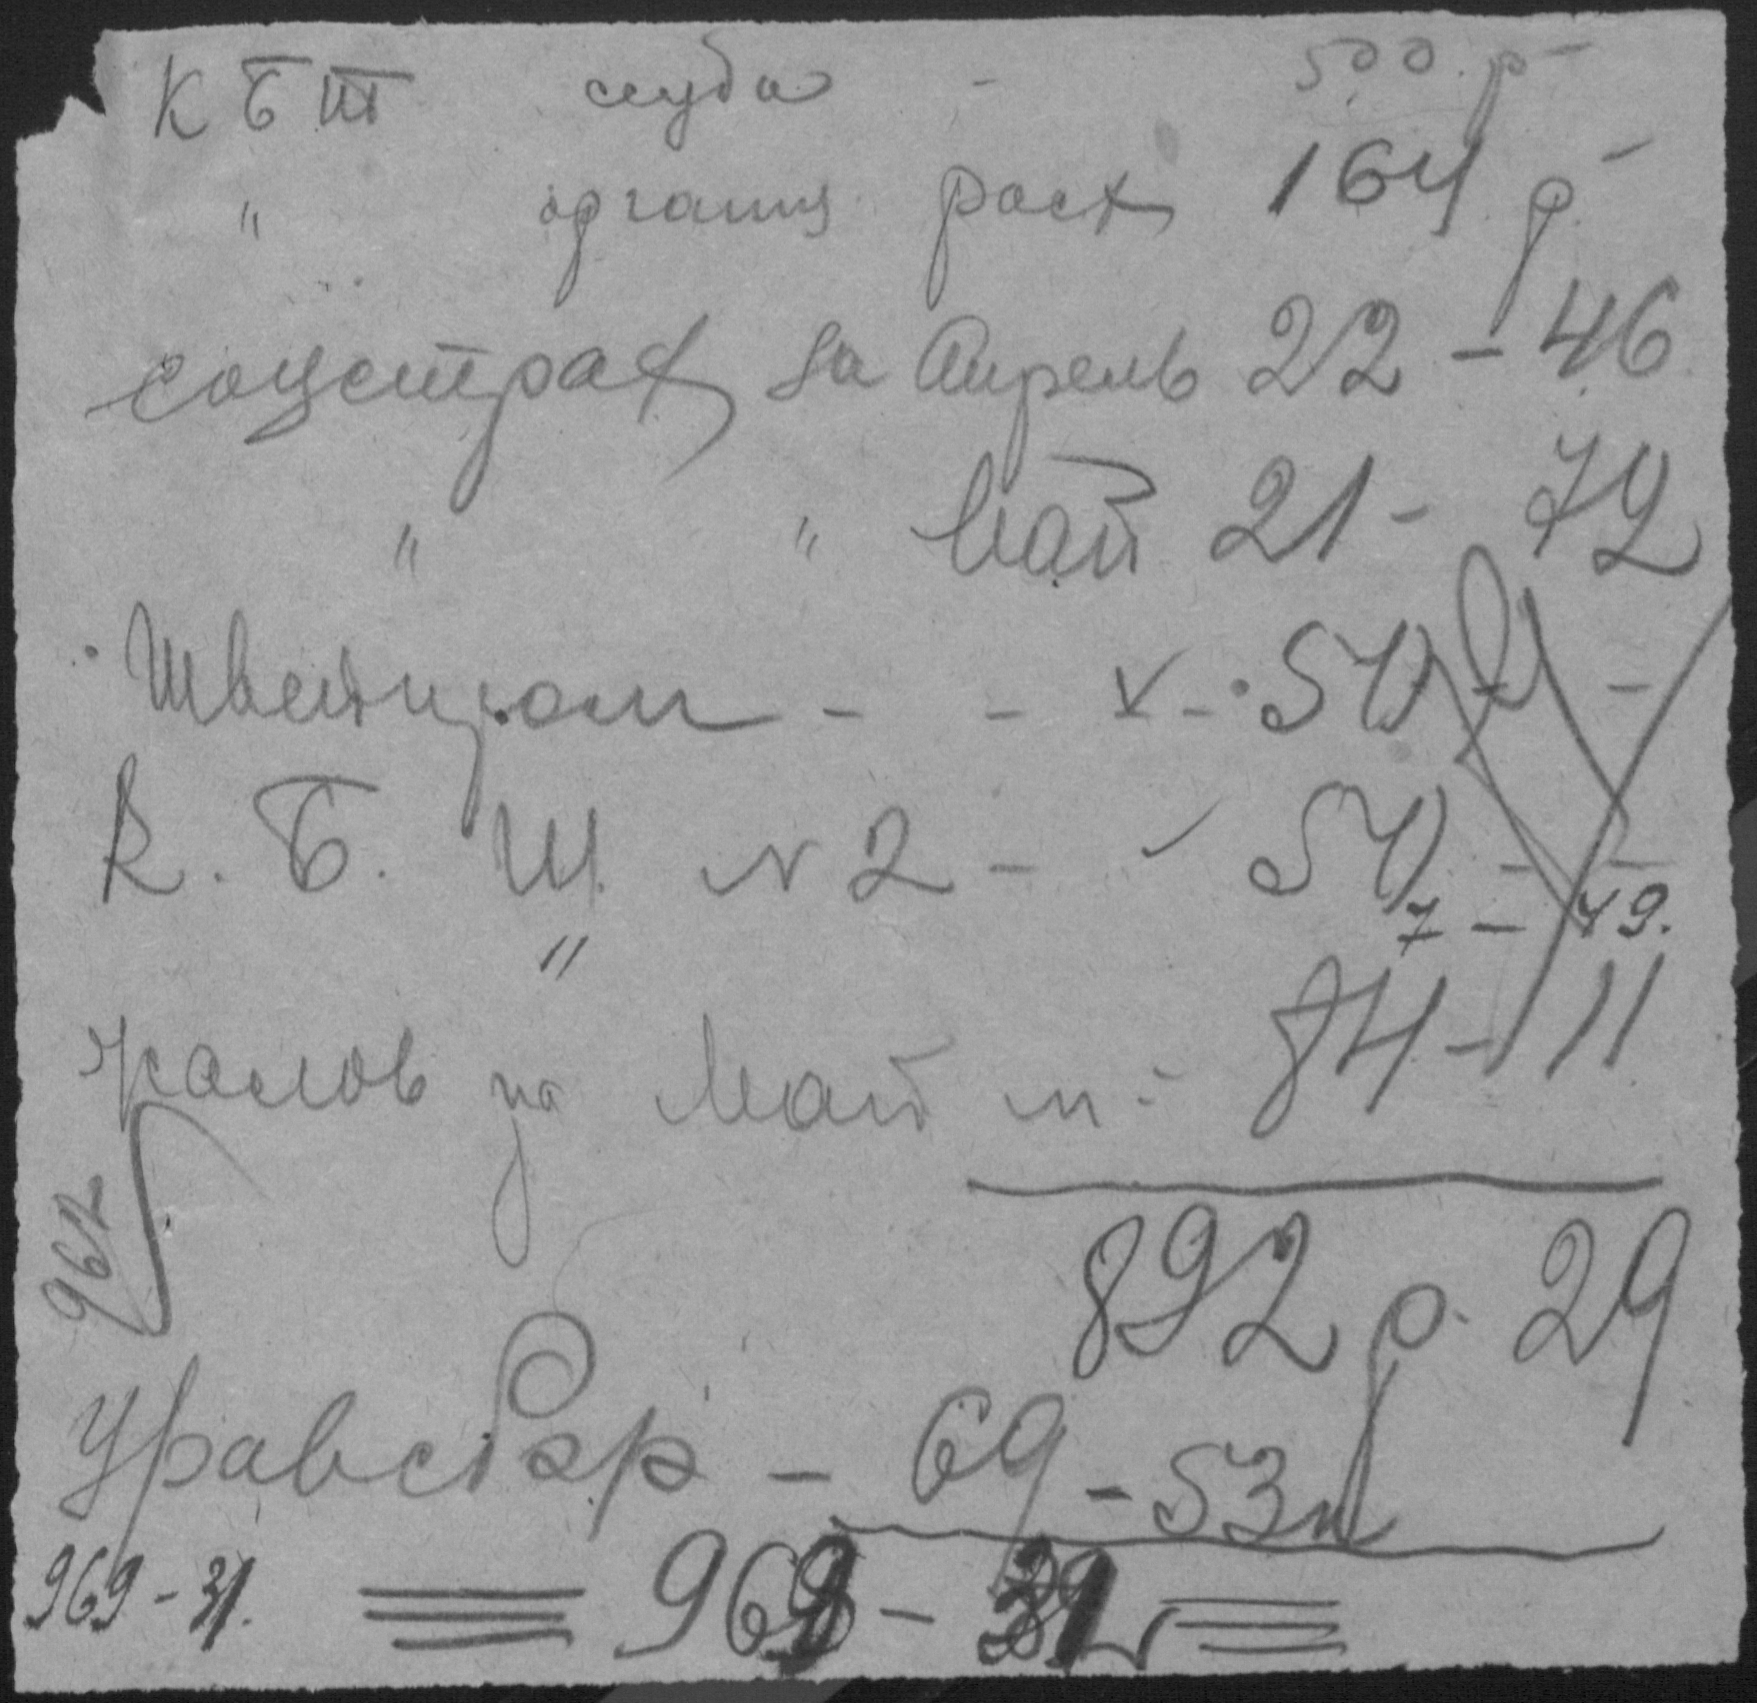 КБШ ссуда - 500 р -
" организ расх 164 р -
соцстрах за Апрель 22 - 46
" " Май 21 - 72
Швейпром - - v - 50 р -
К. Б. Ш. N 2 - 50 - -
" 7 - 49.
жалов за Май м - 84 - 11
892 р. 29
962
Уравсбор - 69 - 53 к
969 - 31. 969 - 31